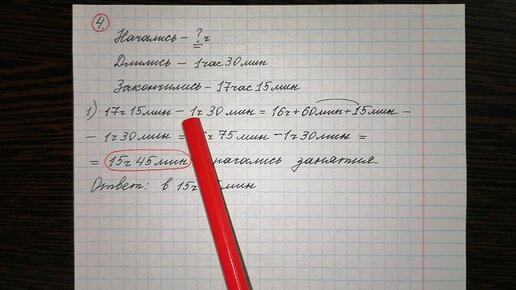 4.
Начались - ? ч
Длились - 1час 30мин
Закончились - 17час 15мин
1) 17ч 15мин - 1ч 30мин = 16ч + 60мин + 15мин -
- 1ч 30мин = ч 75мин - 1ч 30мин =
= 15ч 45мин начались занятия.
Ответ: в 15ч мин